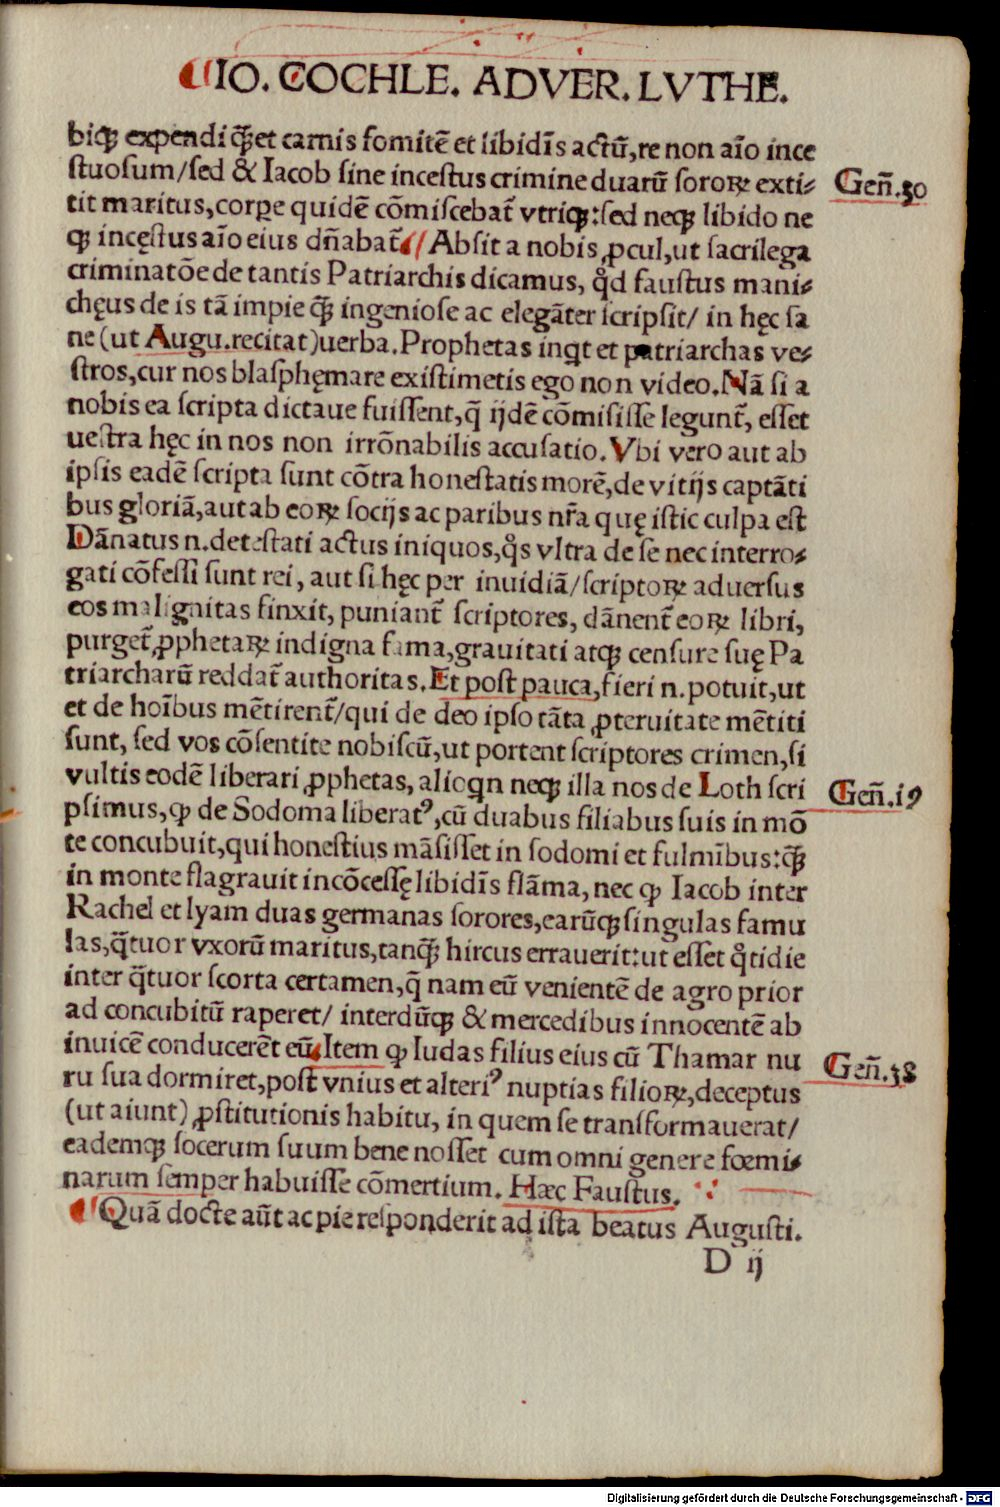 IO. COCHLE. ADVER. LVTHE.
biqꝫ expendi q̃ꝫ et carnis fomitẽ et libidĩs actũ, re non aĩo ince
stuosum/sed & Iacob sine incestus crimine duarũ soroꝝ exti-
tit maritus, corꝑe quidẽ cõmiscebat̃ vtriqꝫ: sed neqꝫ libido ne
qꝫ incęstus aĩo eius dñabat̃ Absit a nobis ꝓcul, ut sacrilega
criminatõe de tantis Patriarchis dicamus, qd̾ faustus mani-
chęus de is tã impie q̃ꝫ ingeniose ac elegãter scripsit/ in hęc sa
ne (ut Augu. recitat) uerba. Prophetas inq̇t et patriarchas ve-
stros, cur nos blasphęmare existimetis ego non video. Nã si a
nobis ea scripta dictaue fuissent, q̃ ijdẽ cõmisisse legunt̃, esset
uestra hęc in nos non irrõnabilis accusatio. Vbi vero aut ab
ipsis eadẽ scripta sunt cõtra honestatis morẽ, de vitijs captãti
bus gloriã, aut ab eoꝝ socijs ac paribus nr̃a quę istic culpa est
Dãnatus n. detestati actus iniquos, q̊s vltra de se nec interro-
gati cõfessi sunt rei, aut si hęc per inuidiã/scriptoꝝ aduersus
eos malignitas finxit, puniant̃ scriptores, dãnent̃ eoꝝ libri,
purget̃ ꝓphetaꝝ indigna fama, grauitati atqꝫ censure suę Pa
triarcharũ reddat̃ authoritas. Et post pauca, fieri n. potuit, ut
et de hoĩbus mẽtirent̃/qui de deo ipso tãta ꝓteruitate mẽtiti
sunt, sed vos cõsentite nobiscũ, ut portent scriptores crimen, si
vultis eodẽ liberari ꝓphetas, alioq̇n neqꝫ illa nos de Loth scri
psimus, ꝙ de Sodoma liberatꝰ, cũ duabus filiabus suis in mõ
te concubuit, qui honestius mãsisset in sodomi et fulmĩbus: q̃ꝫ
in monte flagrauit incõcessę libidĩs flãma, nec ꝙ Iacob inter
Rachel et lyam duas germanas sorores, earũqꝫ singulas famu
las, q̃tuor vxorũ maritus, tanq̃ꝫ hircus errauerit: ut esset q̊tidie
inter q̃tuor scorta certamen, q̃ nam eũ venientẽ de agro prior
ad concubitũ raperet/ interdũqꝫ & mercedibus innocentẽ ab
inuicẽ conducerẽt eũ Item ꝙ Iudas filius eius cũ Thamar nu
ru sua dormiret, post vnius et alteriꝰ nuptias filioꝝ, deceptus
(ut aiunt) ꝓstitutionis habitu, in quem se transformauerat/
eademqꝫ socerum suum bene nosset cum omni genere fœmi-
narum semper habuisse cõmertium. Hæc Faustus.
Quã docte aũt ac pie responderit ad ista beatus Augusti.
D ij
Geñ.30
Geñ.19
Geñ.38
Digitalisierung gefördert durch die Deutsche Forschungsgemeinschaft - DFG